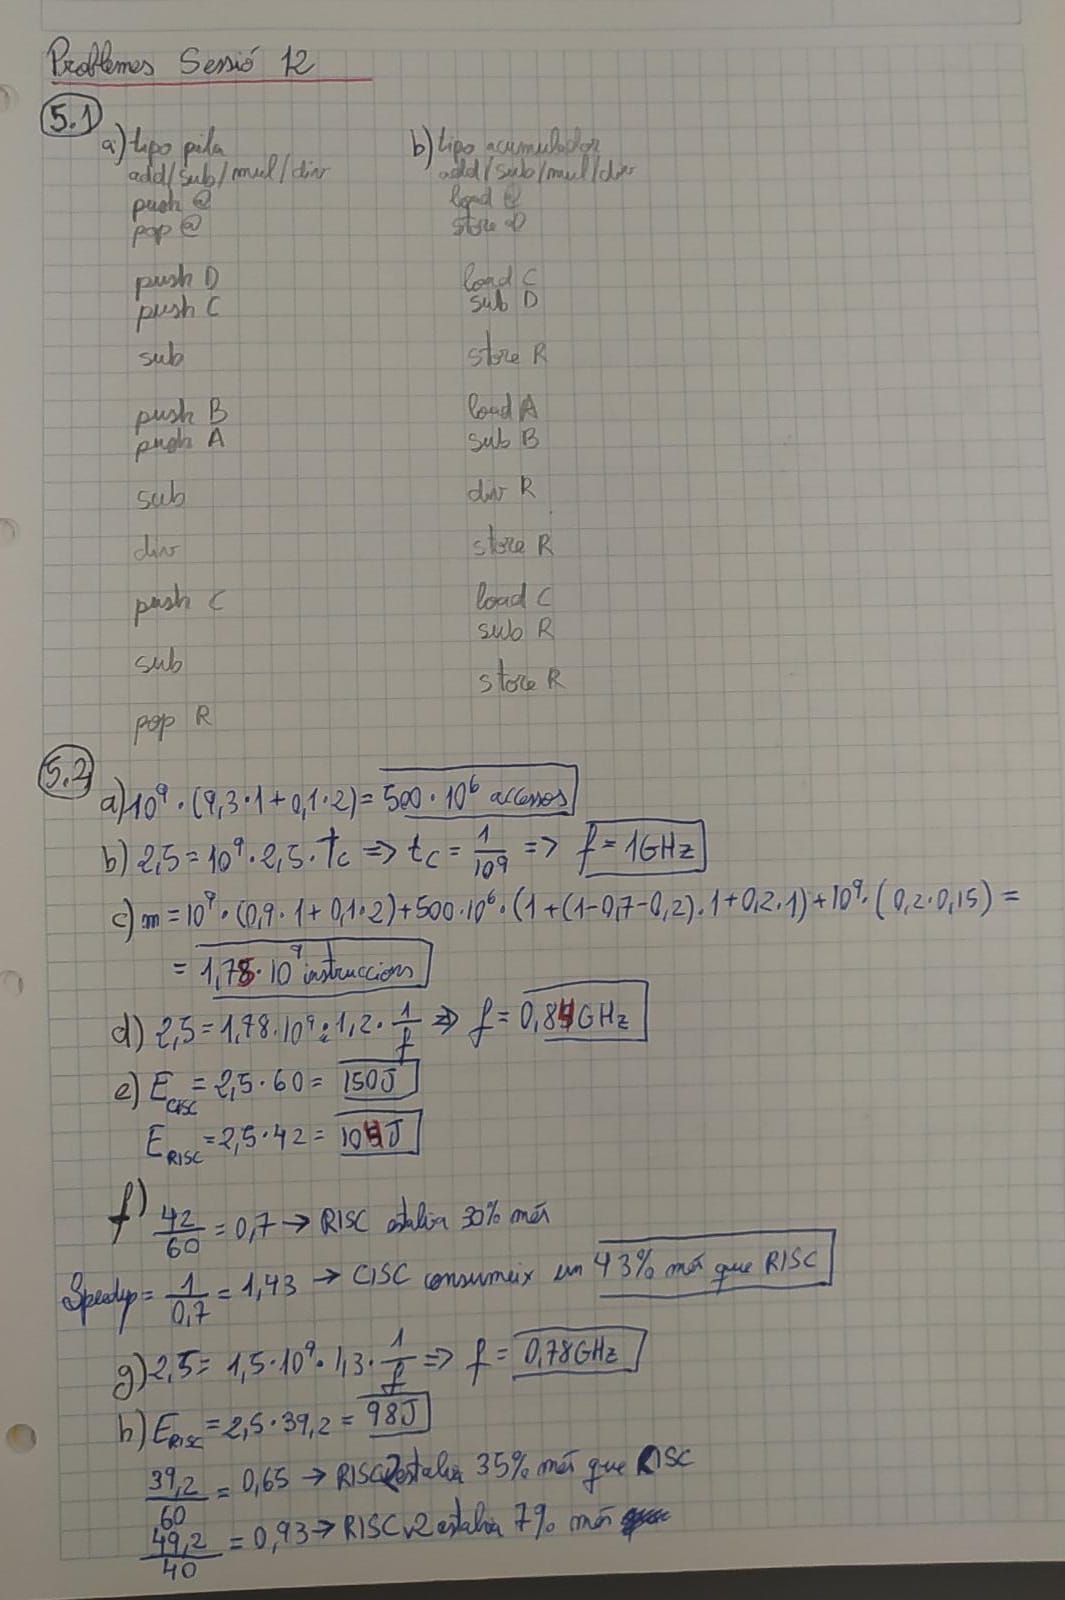 Problemes Sessió 12
5.1
a) tipo pila
add/sub/mul/div
push @
pop @
push D
push C
sub
push B
push A
sub
div
push C
sub
pop R
b) tipo acumulador
add/sub/mul/div
load @
store @
load C
sub D
store R
load A
sub B
div R
store R
load C
sub R
store R
5.2
a) 10^9 · (9,3·1+0,1·2) = 500·10^6 accessos
b) 2,5 = 10^9·2,5·tc => tc = 1/10^9 => f = 1GHz
c) m = 10^9·(0,9·1+0,1·2)+500·10^6·(1+(1-0,7-0,2)·1+0,2·1)+10^9·(0,2·0,15) =
= 1,78·10^9 instruccions
d) 2,5 = 1,78·10^9·1,2·1/f => f = 0,84GHz
e) E CISC = 2,5·60 = 150J
E RISC = 2,5·42 = 104J
f) 42/60 = 0,7 → RISC estalvia 30% més
Speedup = 1/0,7 = 1,43 → CISC consumeix un 43% més que RISC
g) 2,5 = 1,5·10^9·1,3·1/f => f = 0,78GHz
h) E RISC = 2,5·39,2 = 98J
39,2/60 = 0,65 → RISCv2 estalvia 35% més que RISC
49,2/40 = 0,93 → RISCv2 estalvia 7% més